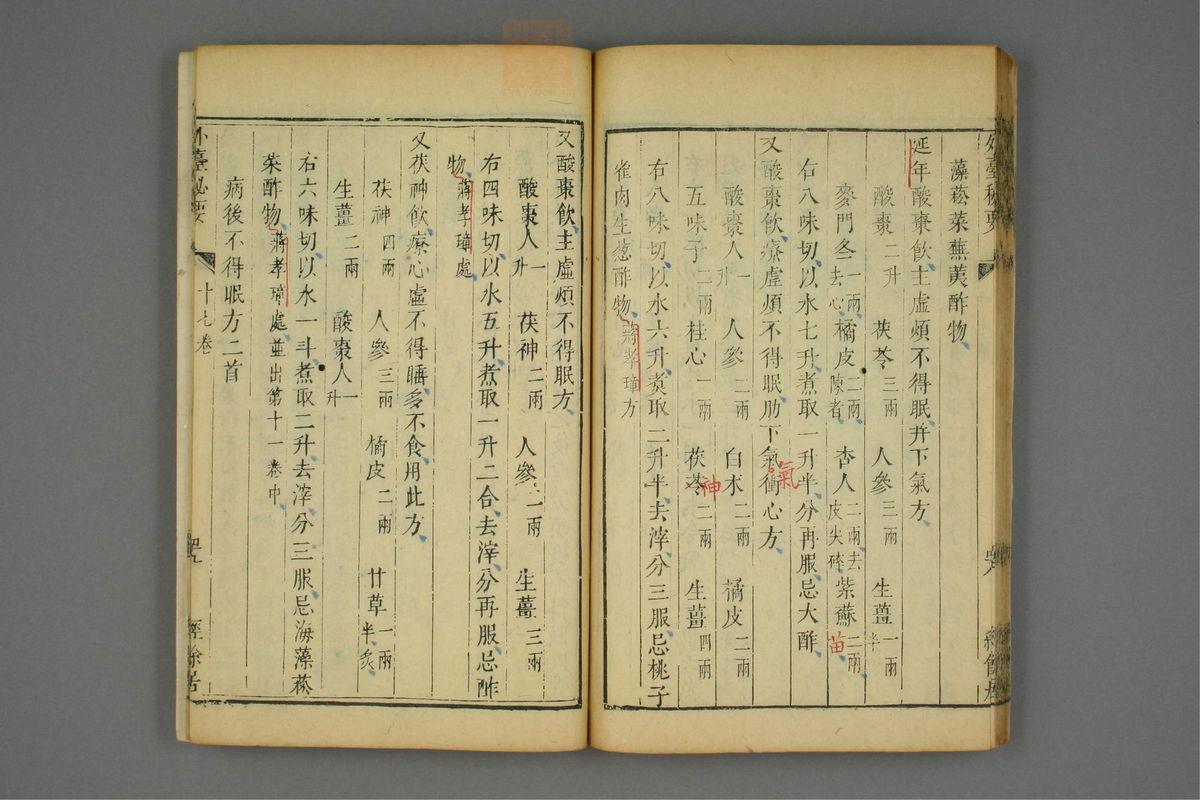 外臺秘要
藻菘菜蕪荑酢物
延年酸棗飲主虛煩不得眠并下氣方
酸棗二升 茯苓三兩 人參三兩 生薑一兩半
麥門冬一兩去心 橘皮二兩陳者 杏人二兩去皮尖碎 紫蘇二兩
苗
右八味切以水七升煮取一升半分再服忌大酢
又酸棗飲療虛煩不得眠肋下氣衝心方
氣
酸棗人一升 人參二兩 白朮二兩 橘皮二兩
五味子二兩 桂心一兩 茯苓二兩 生薑四兩
神
右八味切以水六升煑取二升半去滓分三服忌桃子
雀肉生葱酢物蔣孝璋方
又酸棗飲主虛煩不得眠方
酸棗人一升 茯神二兩 人參二兩 生薑三兩
右四味切以水五升煮取一升二合去滓分再服忌酢
物蔣孝璋處
又茯神飲療心虛不得睡多不食用此方
茯神四兩 人參三兩 橘皮二兩 甘草一兩半炙
生薑二兩 酸棗人一升
右六味切以水一斗煮取二升去滓分三服忌海藻菘
菜酢物蔣孝璋處並出第十一卷中
病後不得眠方二首
外臺祕要
十七卷
經餘居